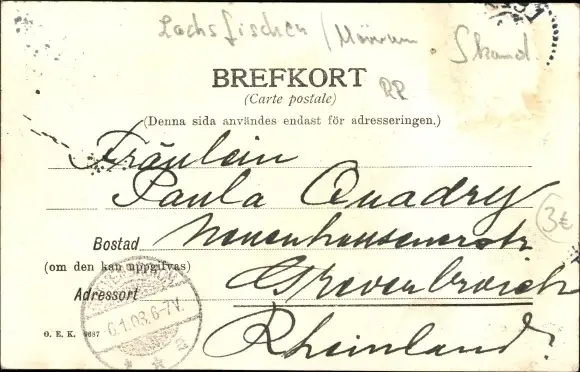 Lachsfischer / Mörrum. Skand
BREFKORT
(Carte postale)
RR
(Denna sida användes endast för adresseringen.)
Fräulein
Paula Quadry
3€
Bostad Neuenhausenerstr
(om den kan uppgifvas)
Grevenbroich
Adressort
6.1.03.6-7V.
Rheinland.
O. E. K. 9687